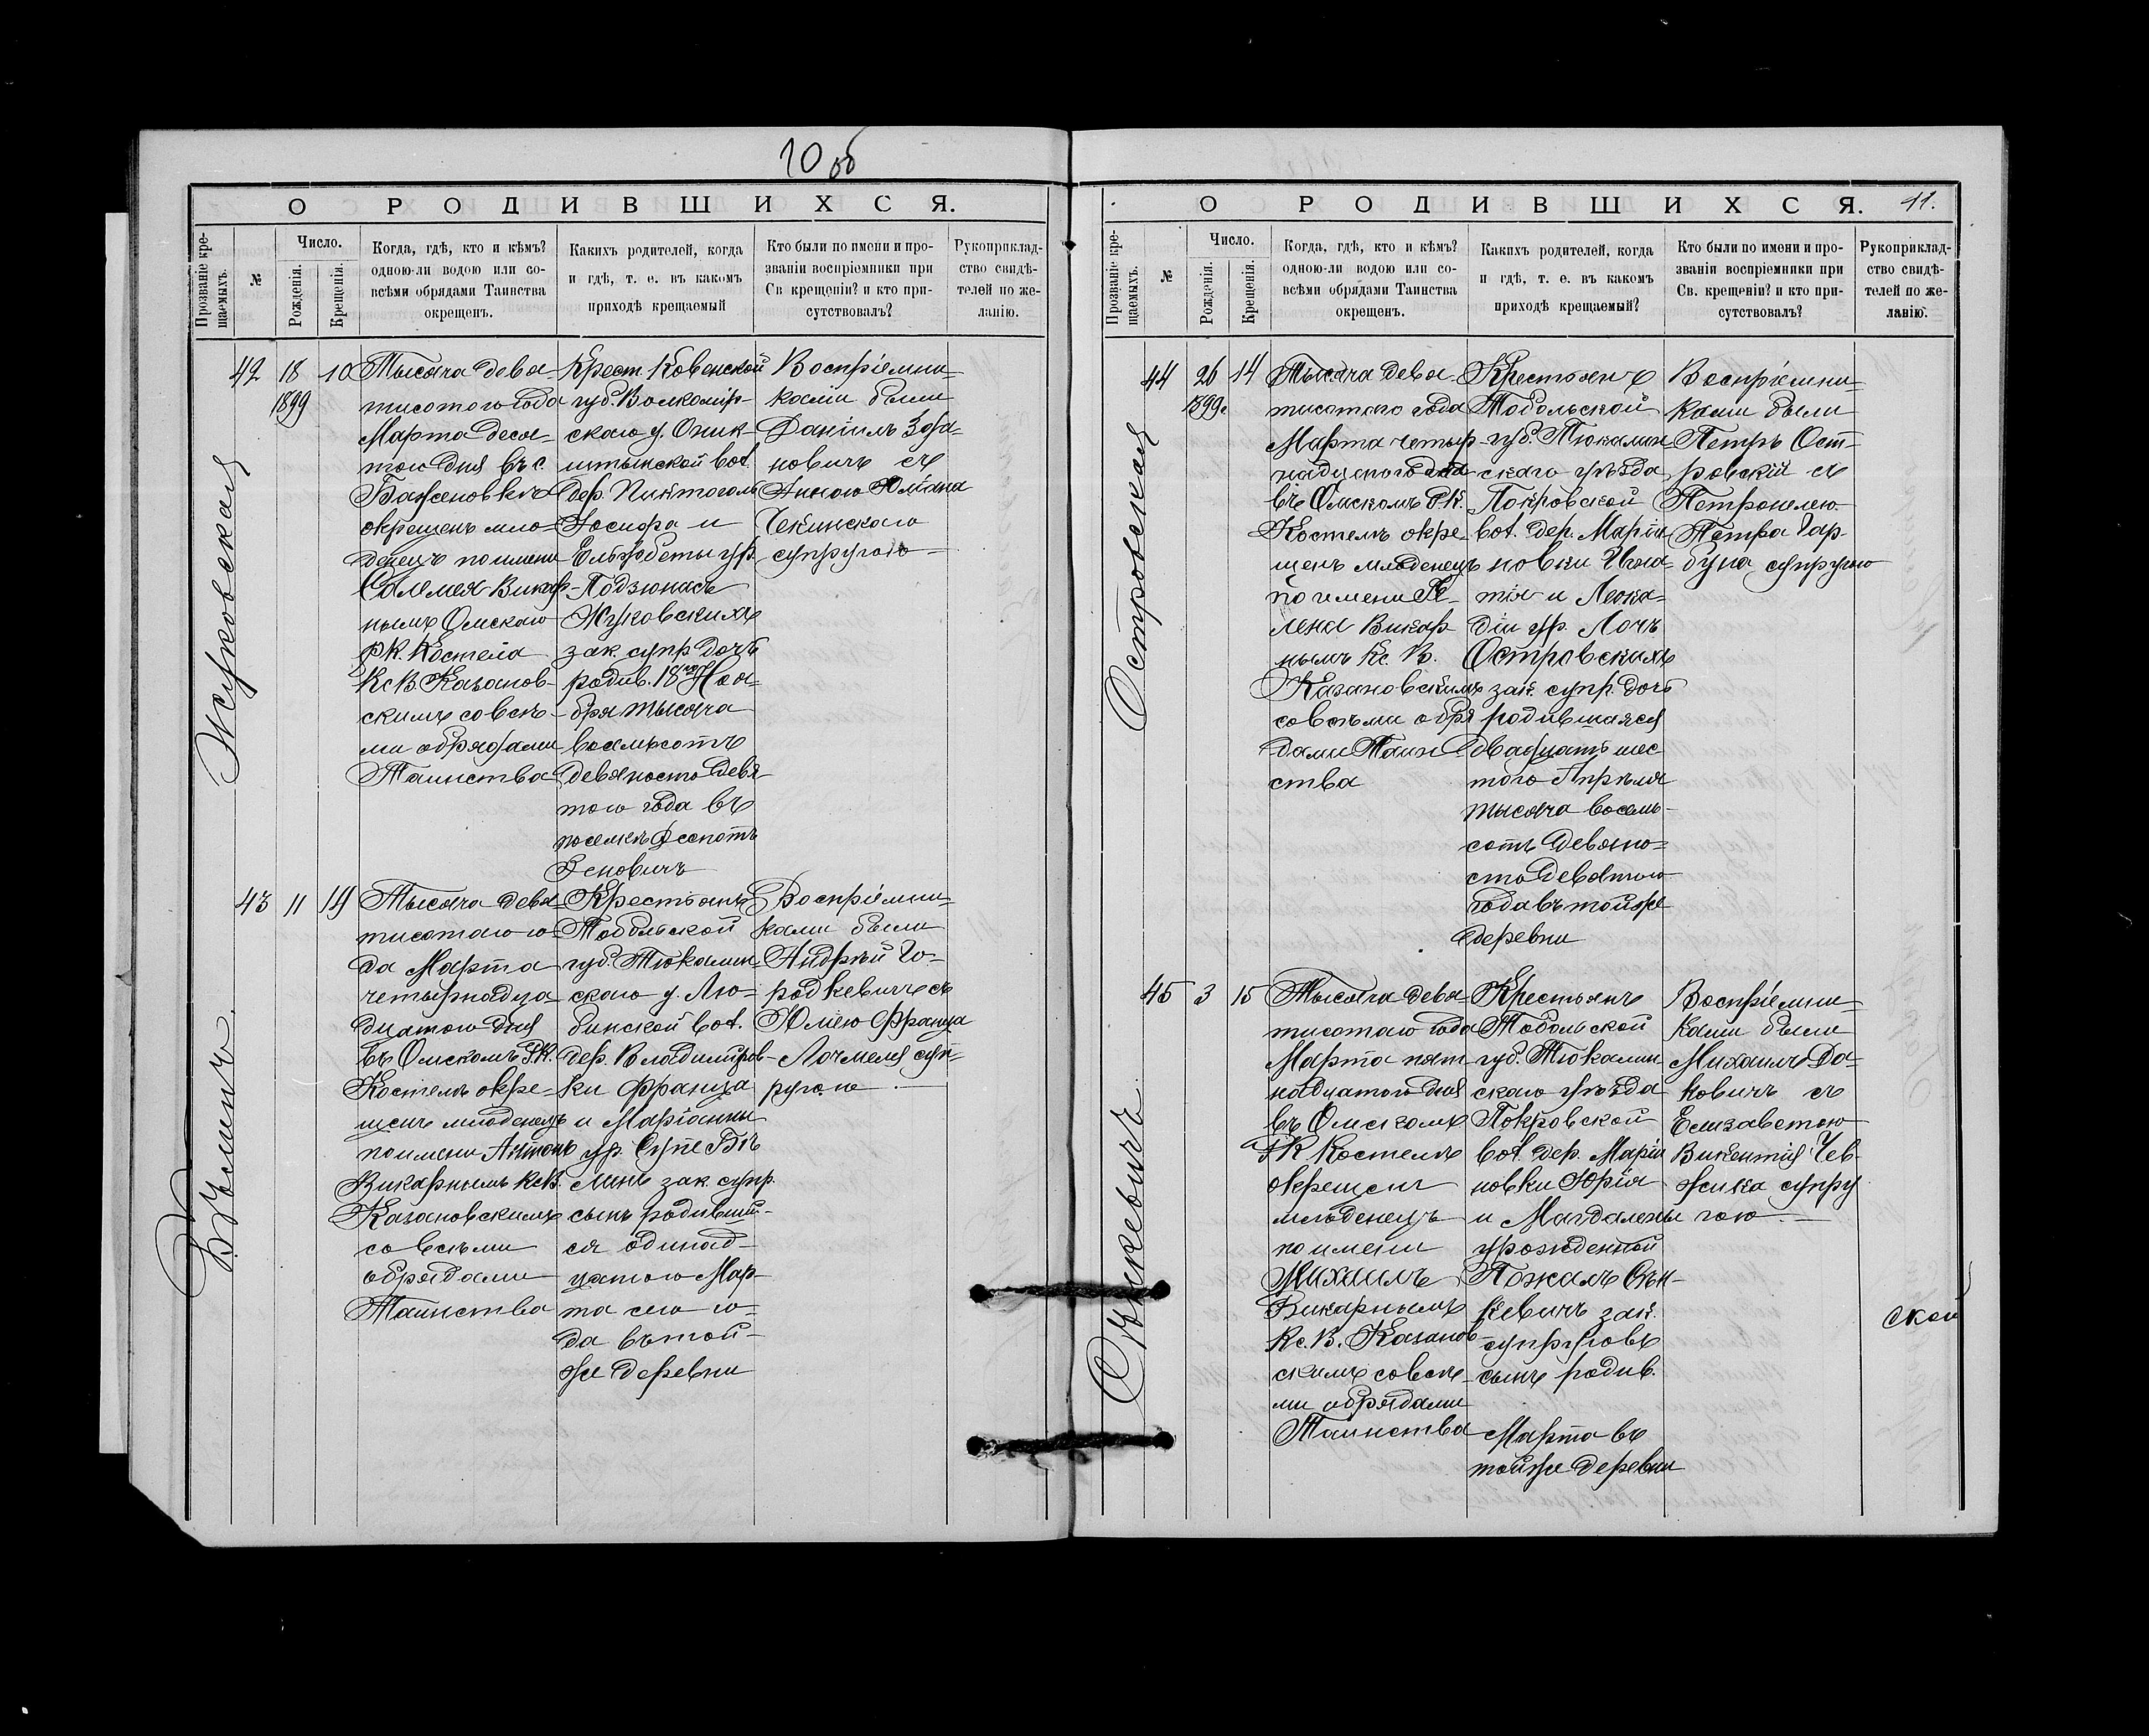 10 об
О РОДИВШИХСЯ.
Прозваніе кре-
щаемыхъ.
№
Число.
Рожденія.
Крещенія.
Когда, гдѣ, кто и кѣмъ?
одною-ли водою или со-
всѣми обрядами Таинства
окрещенъ.
Какихъ родителей, когда
и гдѣ, т. е. въ какомъ
приходѣ крещаемый
Кто были по имени и про-
званіи воспріемники при
Св крещеніи? и кто при-
сутствовалъ?
Рукоприклад-
ство свидѣ-
телей по же-
ланію.
Жуковская
42
18
1899
10
Тысяча девя-
тисотого года
Марта деся-
того дня въ с.
Баженовкѣ
окрещенъ мла-
денецъ по имени
Саломея Викар-
нымъ Омскаго
РК. Костела
Кс В. Казанов-
скимъ со всѣ-
ми обрядами
Таинства
Крест. Ковенской
губ. Волкомір-
скаго у. Оник-
штынской вол.
дер.
Іосифа и
Ельжбеты ур.
Подзюнасъ
Жуковскихъ
зак. супр дочь
родив. 18го Ноя-
бря тысяча
восемьсотъ
девяносто девя-
того года въ
поселкѣ
Воспріемни-
ками были
Даніилъ
новичъ съ
Анною Юліана
Чекинскаго
супругою
Бѣлинъ.
43
11
14
Тысяча девя-
тисотаго го-
да Марта
четырнадца-
дцатого дня
въ Омскомъ РК.
Костелѣ окре-
щенъ младенецъ
по имени Антонъ
Викарнымъ Кс В.
Казановскимъ
со всѣми
обрядами
Таинства
Крестьянъ
Тобольской
губ. Тюкалин-
скаго у. Лю-
бинской вол.
дер. Владиміров-
ки Франца
и Маріанны
ур. Супе Бѣ-
линъ зак. супр.
сынъ родивший-
ся одинад-
цатого Мар-
та сего го-
да въ той-
же деревни
Воспріемни-
ками были
Андрей Го-
родкевичъ съ
Юліею Франца
Лочмеля суп-
ругою
О РОДИВШИХСЯ.
11.
Прозваніе кре-
щаемыхъ.
№
Число.
Рожденія.
Крещенія.
Когда, гдѣ, кто и кѣмъ?
одною-ли водою или со-
всѣми обрядами Таинства
окрещенъ.
Какихъ родителей, когда
и гдѣ, т. е. въ какомъ
приходѣ крещаемый?
Кто были по имени и про-
званіи воспріемники при
Св. крещеніи? и кто при-
сутствовалъ?
Рукоприклад-
ство свидѣ-
телей по же-
ланію.
Островская
44
26
1899г
14
Тысяча девя-
тисотаго года
Марта четыр-
надцатого дня
въ Омскомъ РК.
Костелѣ окре-
щенъ младенецъ
по имени Ге-
лена Викар-
нымъ Кс. В.
Казановскимъ
со всѣми обря
дами Таин
ства
Крестьянъ
Тобольской
губ. Тюкалин
скаго уѣзда
Покровской
вол. дер. Марія
новки Игна-
тія и Леока-
діи ур. Лочъ
Островскихъ
зак. супр. дочь
родившаяся
двадцать шес
того Апрѣля
тысяча восемь-
сотъ девяно-
сто девятого
года въ тойже
деревни
Воспріемни-
ками были
Петръ Ост-
ровскій съ
Петронелею
Петра Гар-
буна супругою
Сѣнкевичъ.
45
3
15
Тысяча девя-
тисотаго года
Марта пят-
надцатого дня
въ Омскомъ
РК Костелѣ
окрещенъ
младенецъ
по имени
Михаилъ
Викарнымъ
Кс. В. Казанов-
скимъ со всѣ-
ми обрядами
Таинства
Крестьянъ
Тобольской
губ. Тюкалин
скаго уѣзда
Покровской
вол. дер. Марія
новки Юрія
и Магдалены
урожденной
Пожалъ Сѣн-
кевичъ зак.
супруговъ
сынъ родив.
Марта въ
тойже деревни
Воспріемни-
ками были
Михаилъ Да-
ковичъ съ
Елизаветою
Викентія Чев-
жика супру
гою
ской